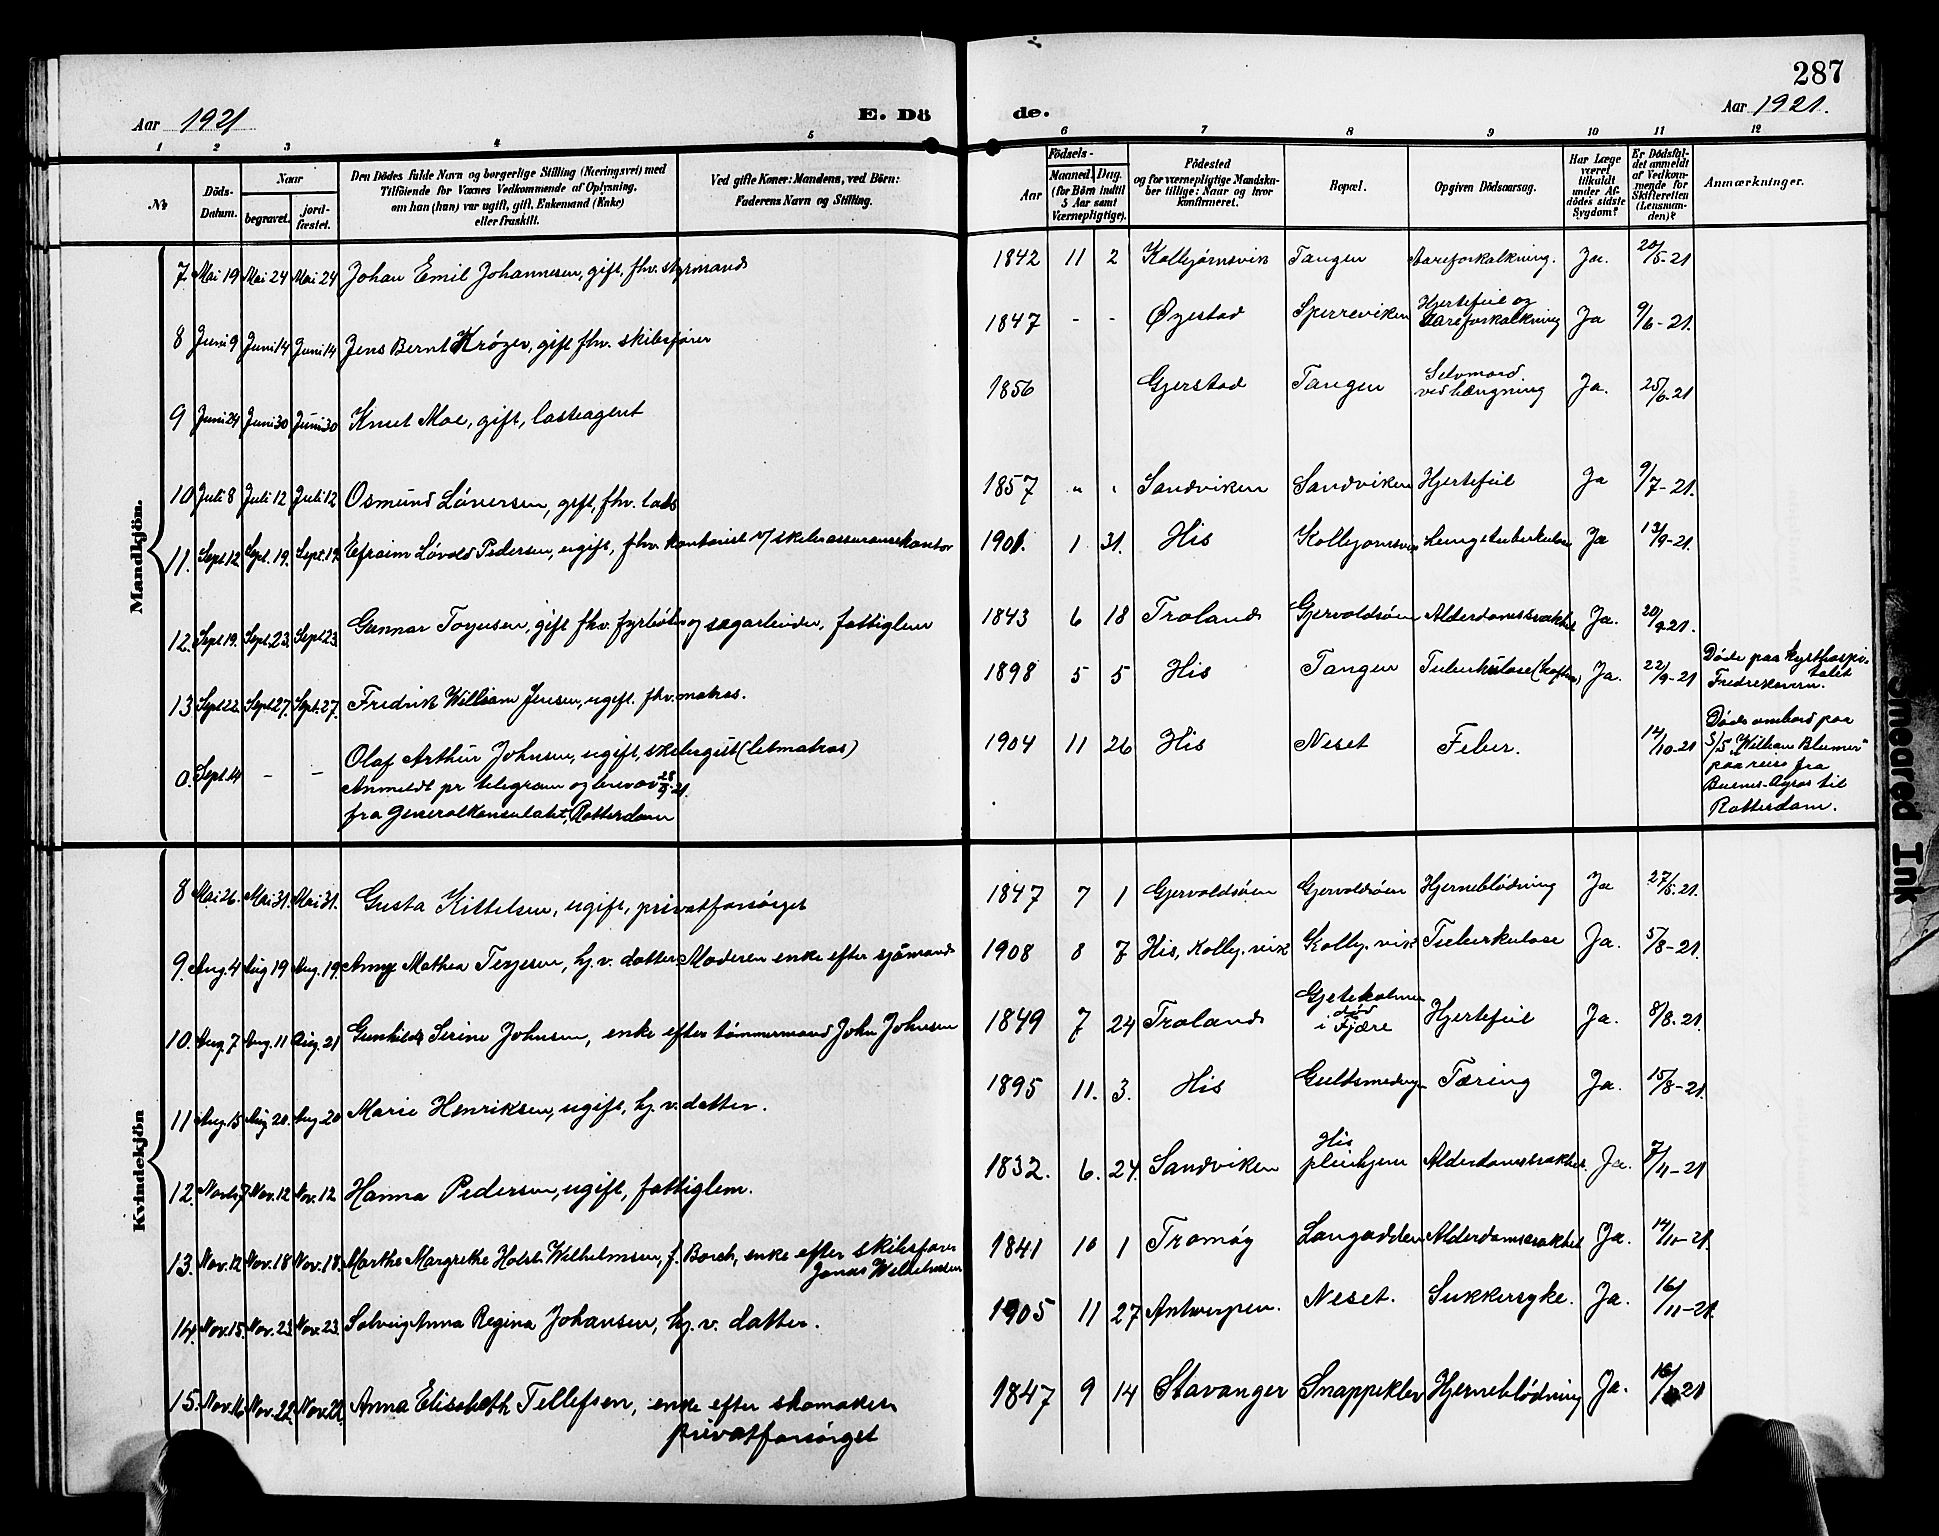 287
Aar 1921
E. Dö
de.
Aar 1921.
1 2 3 4 5 6 7 8 9 10 11 12
№
Döds-Datum.
Naar
begravet.
jord-fæstet.
Den Dödes fulde Navn og borgerlige Stilling (Næringsvei) med
Tilföiende for Voxnes Vedkommende af Oplysning,
om han (hun) var ugift, gift, Enkemand (Enke)
eller fraskilt.
Ved gifte Koner: Mandens, ved Börn:
Faderens Navn og Stilling.
Födsels-
Aar
Maaned. Dag.
(for Börn indtil
5 Aar samt
Værnepligtige).
Födested
og for værnepligtige Mandskaber tillige: Naar og hvor
konfirmeret.
Bopæl.
Opgiven Dödsaarsag.
Har Læge
været
tilkaldt
under Afdödes sidste
Sygdom?
Er Dödsfaldet anmeldt
af Vedkommende for
Skifteretten
(Lensmanden)?
Anmærkninger.
Mandkjön.
7 Mai 19 Mai 24 Mai 24 Johan Emil Johannesen, gift, fhv. styrmand 1842 11 2 Kolbjørnsvik Tangen Aareforkalkning. Ja. 20/5-21
8 Juni 9 Juni 14 Juni 14 Jens Bernt Krøger, gift fhv. skibsfører 1847 - - Øyestad Sperreviken Hjertefeil og
Aareforkalkning Ja 9/6-21.
9 Juni 24 Juni 30 Juni 30 Knut Moe, gift, lasteagent 1856 Gjerstad Tangen Selvmord
ved hængning Ja. 25/6-21
10 Juli 8 Juli 12 Juli 12 Osmund Løversen, gift, fhv. lods 1857 " " Sandviken Sandviken Hjertefeil Ja 9/7-21.
11. Sept 12 Sept. 19. Sept. 19. Efraim Løvold Pedersen, ugift, fhv. kontorist v/ skibsassuransekontor 1901. 1 31. His Kolbjørnsvik Lungetuberkulose Ja 13/9-21.
12. Sept 19. Sept. 23. Sept 23 Gunnar Terjesen, gift fhv. fyrbøter og sagarbeider, fattiglem 1843 6 18 Froland Gjervoldsøen Alderdomssvakhet Ja. 20/9 21.
13 Sept 22. Sept 27. Sept. 27. Fredrik William Jensen, ugift. fhv. matros. 1898 5 5 His Tangen Tuberkulose (hoften) Ja. 22/9-21 Døde paa kysthospitalet
Fredriksvern.
0. Sept. 14 - - Olaf Arthur Johnsen, ugift, skibsgut (letmatros)
Anmeldt pr telegram og brev av 28/9-21.
fra Generalkonsulatet, Rotterdam 1904 11 26 His Neset Feber. 14/10-21 Døde ombord paa
S/S "William Blumer"
paa reise fra
Buenos-Ayres til
Rotterdam.
Kvindekjön
8 Mai 26. Mai 31. Mai 31. Gusta Kittelsen, ugift, privatforsørget 1847 7 1 Gjervoldsøen Gjervoldsøen Hjerneblödning Ja 27/5-21.
9. Aug. 4 Aug 19 Aug. 19. Anny Mathea Terjesen, hj. v. datter. Moderen enke efter sjømand 1908 8 7 His, Kolbj. vik Kolbj. vik Tuberkulose Ja. 5/8-21.
10. Aug. 7 Aug. 11 Aug. 21 Gunhild Serine Johnsen, enke efter tømmermand John Johnsen 1849 7 24 Froland Gjeteholmen
død
i Fjære Hjertefeil Ja. 8/8-21.
11 Aug. 15 Aug 20. Aug 20 Marie Henriksen, ugift, hj. v. datter. 1895 11. 3. His Guldsmedeng Tæring Ja. 15/8-21.
12. Novb. 7 Nov. 12 Nov. 12 Hanna Pedersen, ugift, fattiglem. 1832. 6. 24. Sandviken His
pleiehjem Alderdomssvakhet. Ja. 7/11-21
13. Nov. 12 Nov. 18 Nov. 18. Marthe Margrethe Holst Wilhelmsen, f. Borch, enke efter skibsfører
Jonas Wilhelmsen 1841 10 1 Tromøy Langodden Alderdomssvakhet Ja. 14/11-21.
14. Nov. 15. Nov. 23. Nov. 23. Solveig Anna Regina Johansen, hj. v. datter. 1905 11 27 Antwerpen. Neset. Sukkersyke. Ja. 16/11-21.
15. Nov. 16 Nov. 22. Nov. 22. Anna Elisabeth Tellefsen, enke efter skomaker
privatforsørget 1847 9 14 Stavanger Snappeklev Hjerneblödning Ja. 16/11 21
Smeared Ink